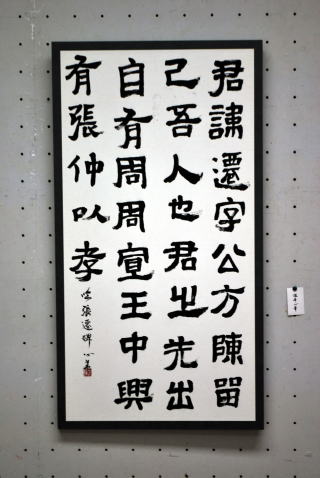 君諱遷字公方陳留
己吾人也君之先出
自有周周宣王中興
有張仲以孝
張遷碑